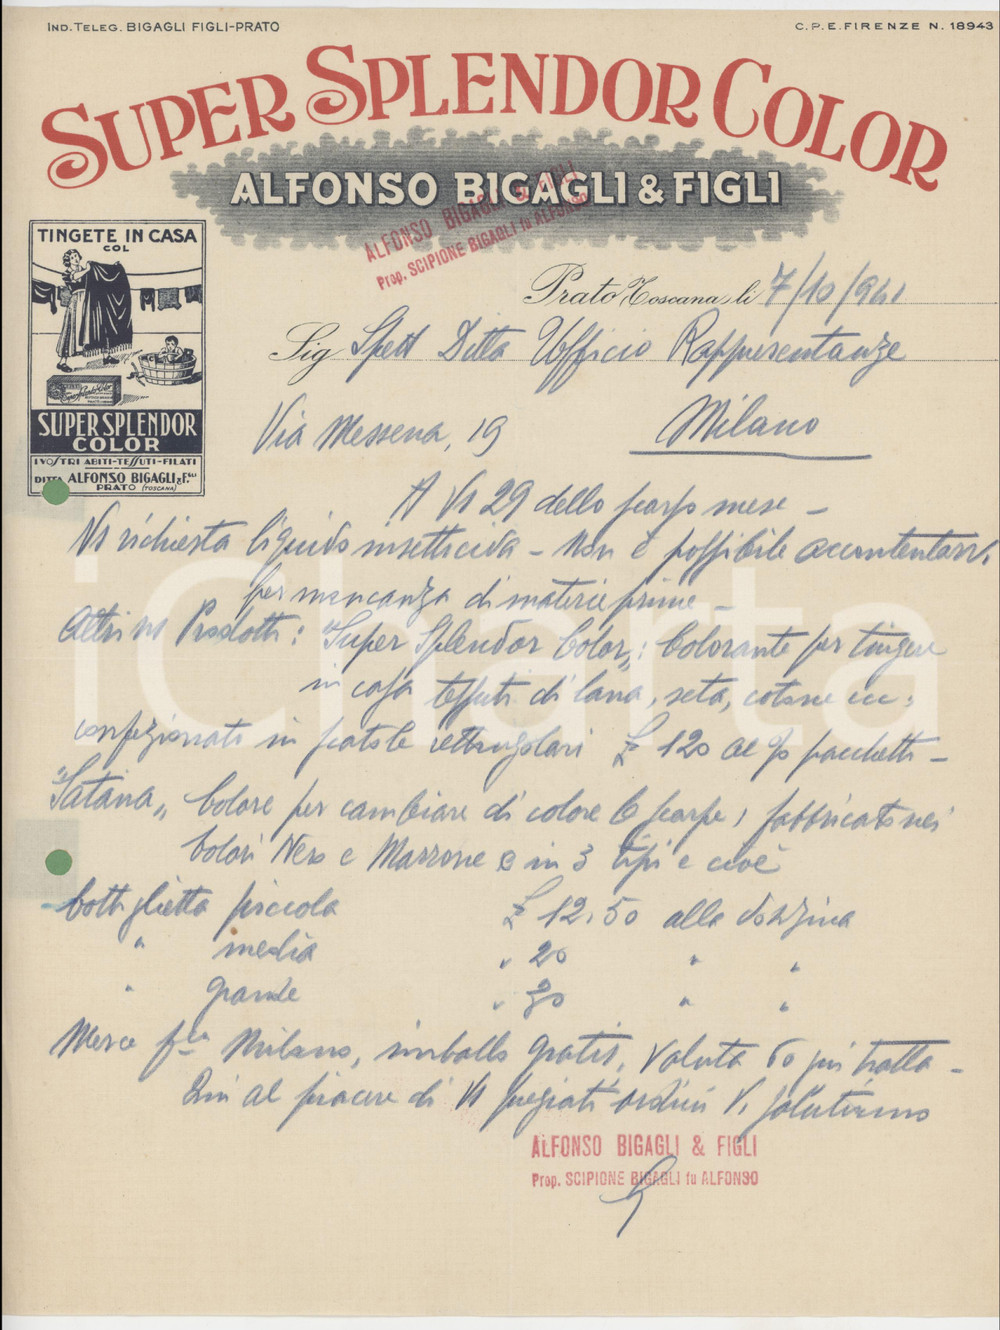 IND. TELEG. BIGAGLI FIGLI-PRATO
C.P.E. FIRENZE N. 18943
SUPER SPLENDOR COLOR
ALFONSO BIGAGLI & FIGLI
ALFONSO BIGAGLI & FIGLI
Prop. SCIPIONE BIGAGLI fu ALFONSO
TINGETE IN CASA
COL
SUPER SPLENDOR
COLOR
I VOSTRI ABITI-TESSUTI-FILATI
DITTA ALFONSO BIGAGLI & F.GLI
PRATO (TOSCANA)
Prato Toscana, li 7/10/941
Sig Spett Ditta Ufficio Rappresentanze
Via Messena, 19 Milano
A Vs 29 dello scorso mese -
Vs richiesta liquido insetticida - Non è possibile accontentarvi
per mancanza di materie prime -
Altri ns Prodotti: "Super Splendor Color": Colorante per tingere
in casa tessuti di lana, seta, cotone ecc;
confezionato in scatole rettangolari £ 120 al % pacchetti -
"Satana" Colore per cambiare di colore le scarpe, fabbricato nei
Colori Nero e Marrone e in 3 tipi e cioè
bottiglietta piccola £ 12.50 alla dozzina
" media " 20 " "
" grande " 30 " "
Merce f.co Milano, imballo gratis, valuta 60 tratta -
al piacere di Vs pregiati ordini Vi salutiamo
ALFONSO BIGAGLI & FIGLI
Prop. SCIPIONE BIGAGLI fu ALFONSO
iCharta